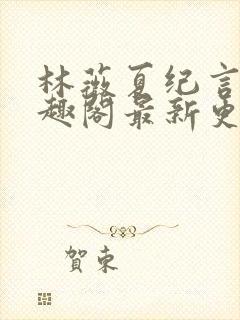 林薇夏纪言
趣阁最新更
賀東